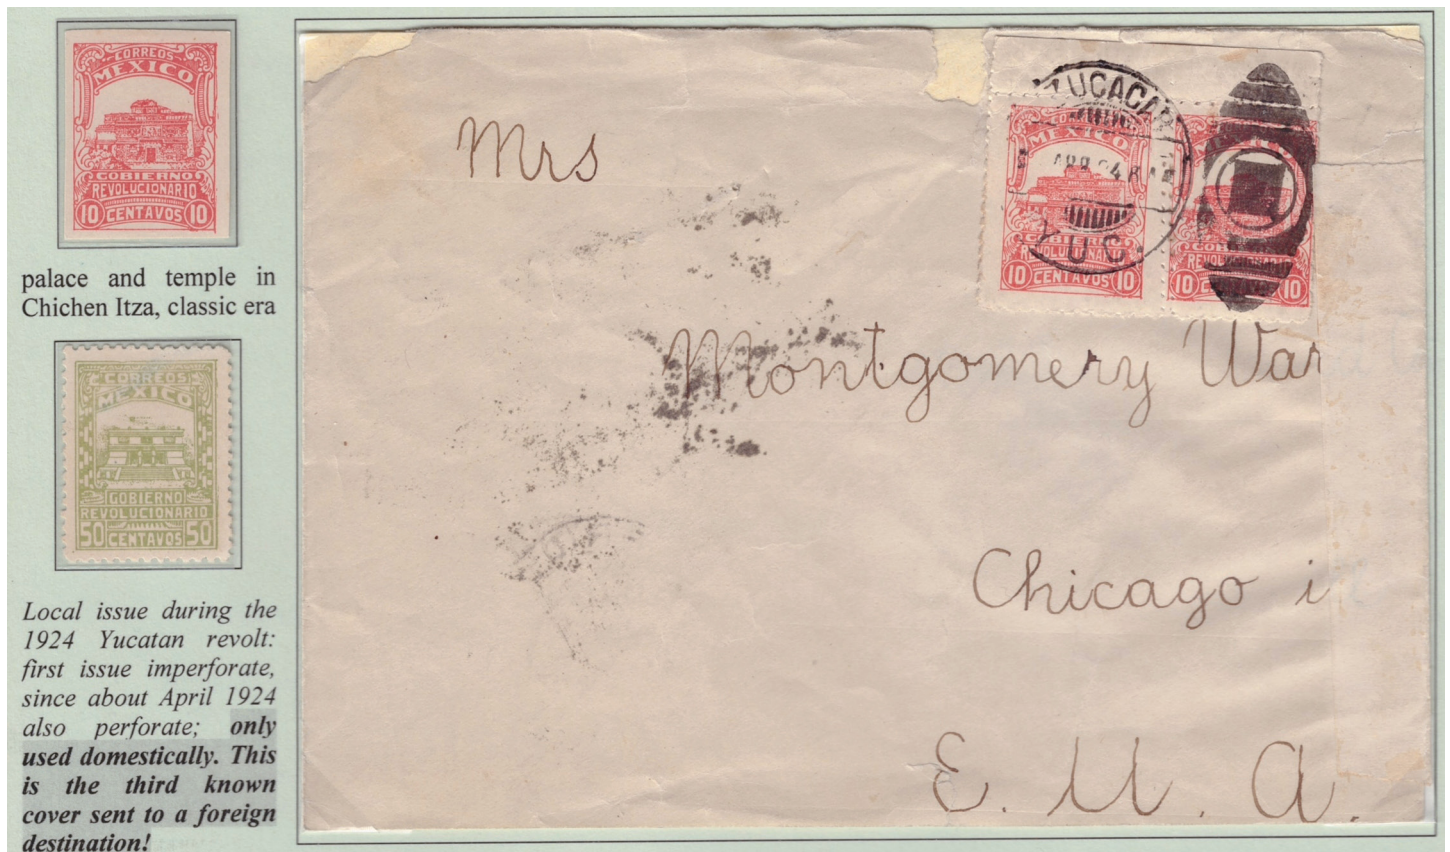 CORREOS
MEXICO
GOBIERNO
REVOLUCIONARIO
10 CENTAVOS 10
palace and temple in
Chichen Itza, classic era
CORREOS
MEXICO
GOBIERNO
REVOLUCIONARIO
50 CENTAVOS 50
Local issue during the
1924 Yucatan revolt:
first issue imperforate,
since about April 1924
also perforate; only
used domestically. This
is the third known
cover sent to a foreign
destination!
Mrs
Montgomery War
Chicago i
E. U. A.
MEXICO
REVOLUCIONARIO
10 CENTAVOS 10
YUC.
REVOLUCIONARIO
10 10